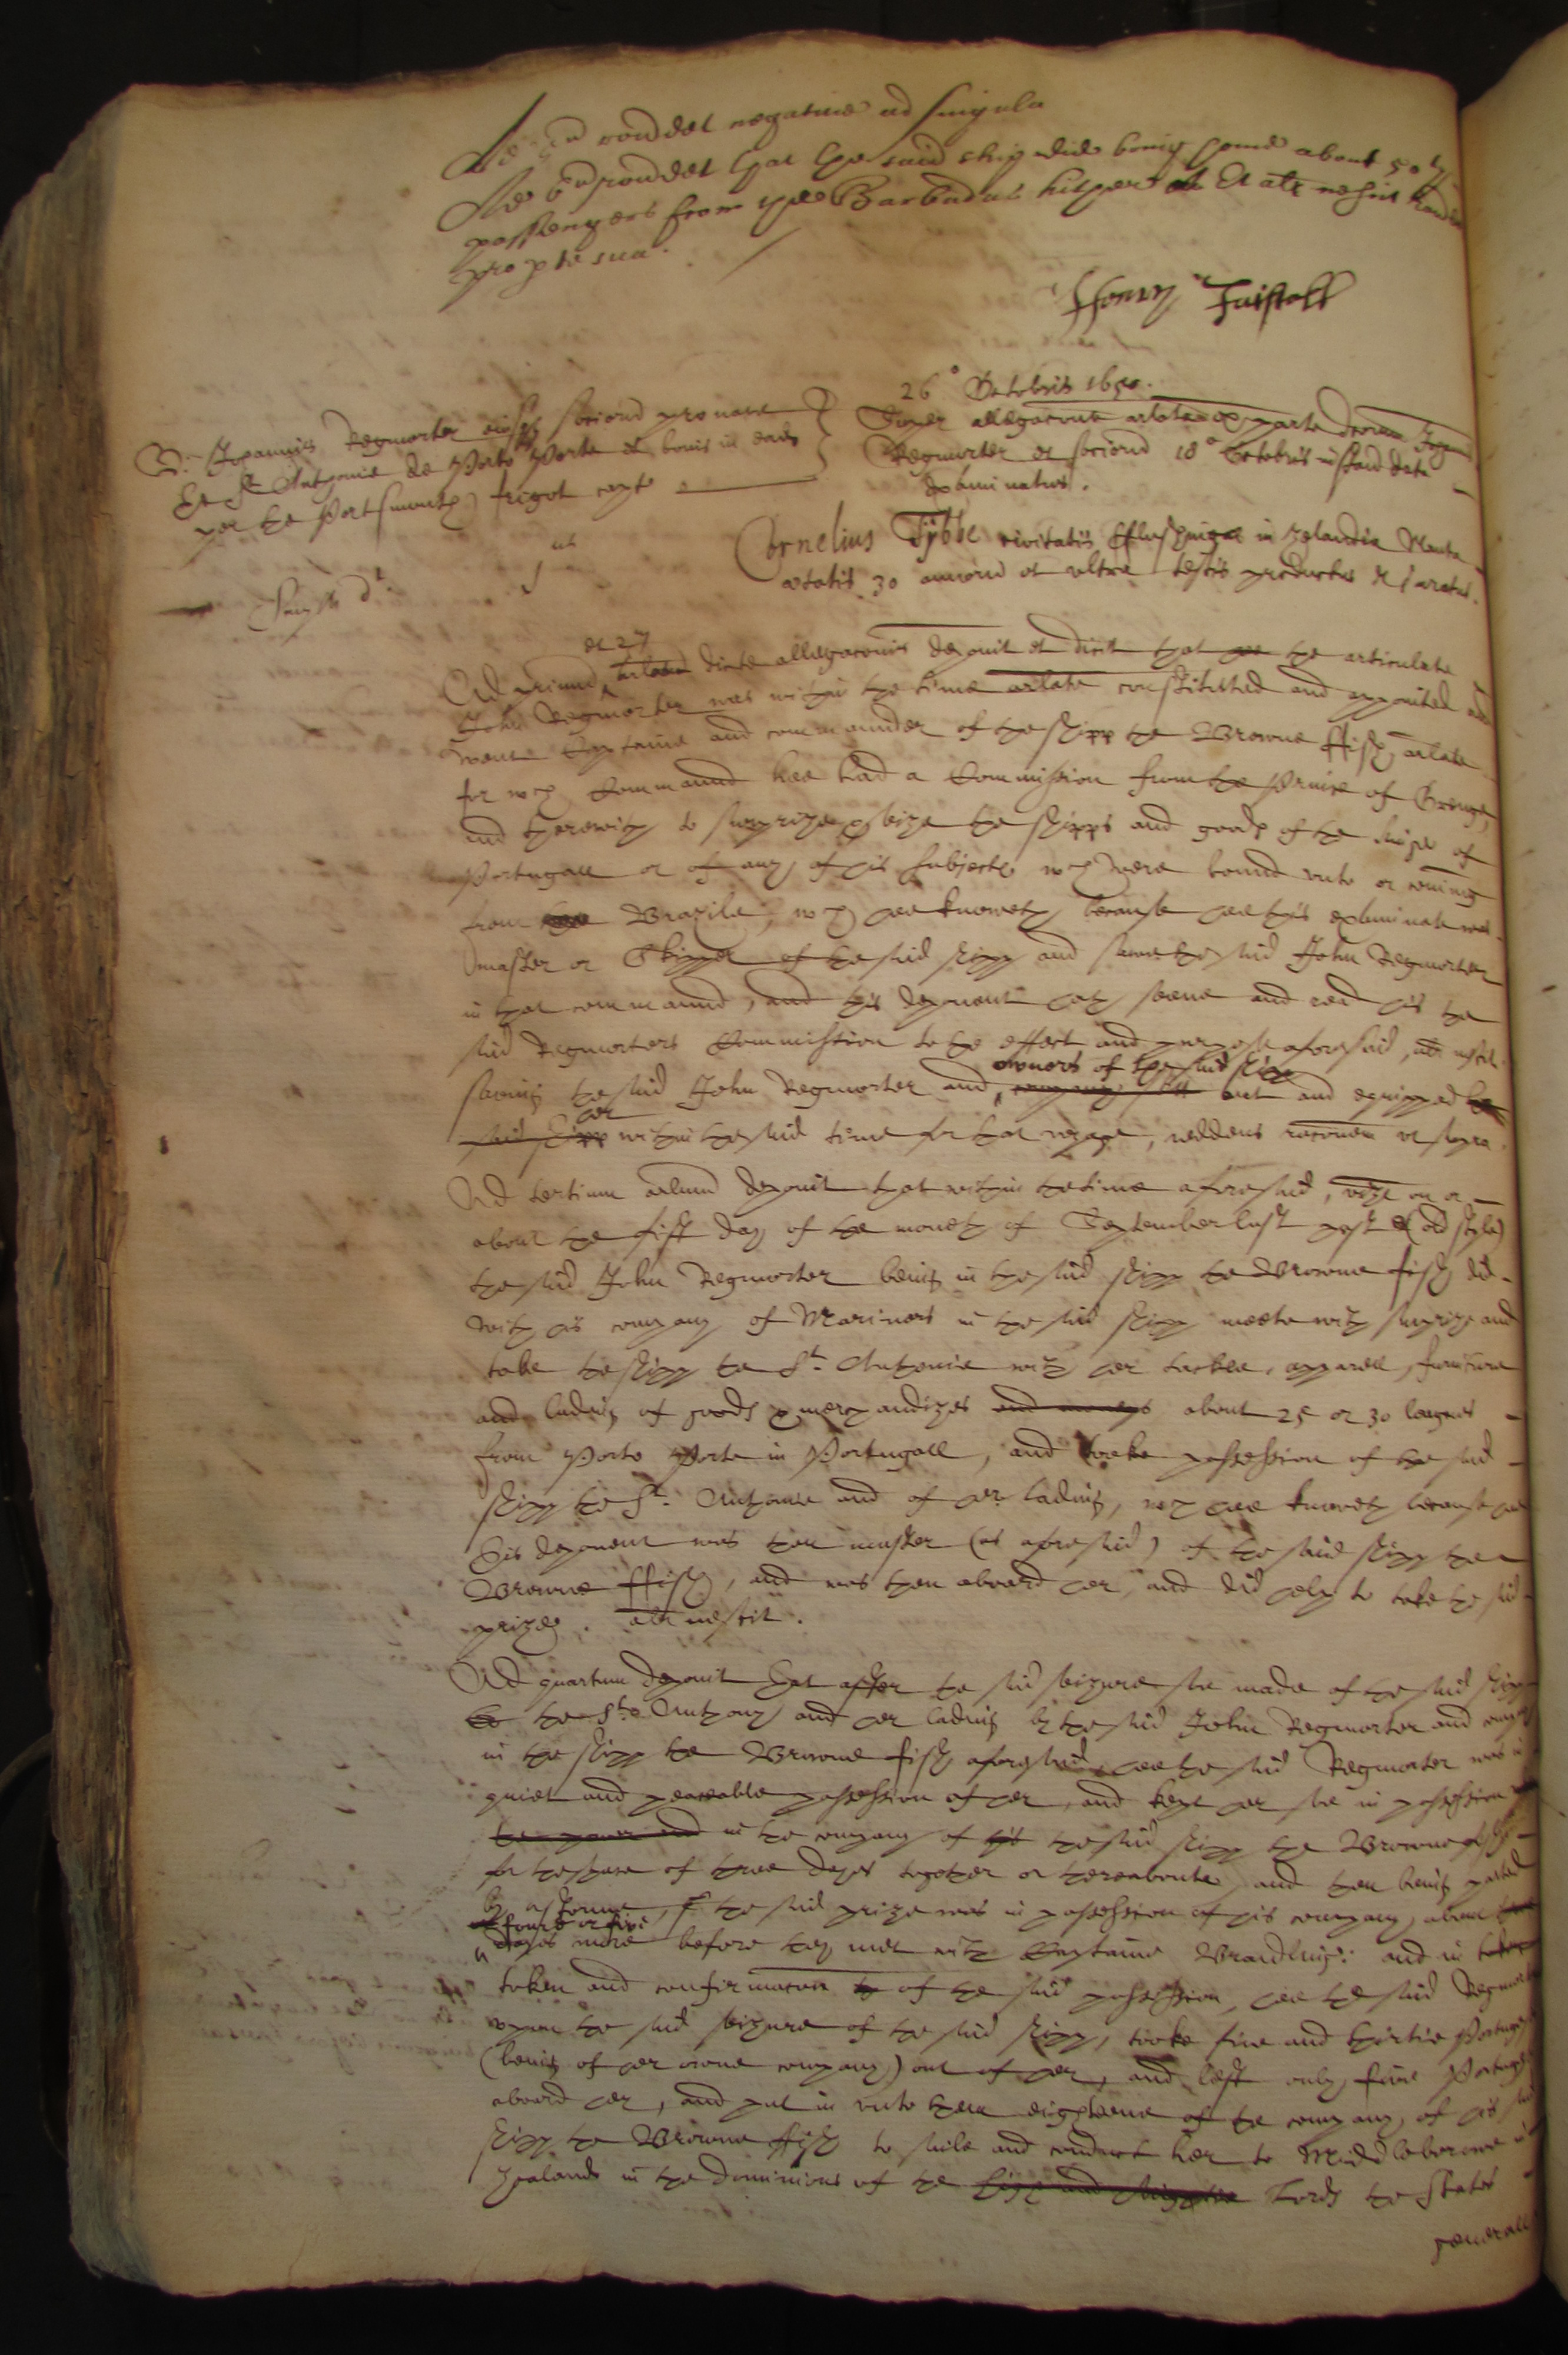 Ad 5 rondet negative ad singula
Ad 6 rondet that the said ship did bring home about 50ty
passengers from the Barbadas hither Et alr nescit
pro parte sua.
Henry Tuistall
26o Octobris 1650.
Super allegacone arlate ex parte dcorum Johannis
Regmorter et sociorum 18o Octobris instan data
examinatus.
D: Johannis Regmorter eiusq sociorum pro nave
the St Anthonie de Porto Porte et bonis in eadem
per the Portsmouth frigot capt
Cornelius Tybbe civitatis Flushinge in Zelandia Nauta
ætatis 30 annorum et ultra testis productus et juratus.
Ad primum et 2m dicte allegaconis deponit et dicit that the articulate
John Regmorter was within the time arlate constituted and appointed
Captaine and commannder of the shipp the Browne ffish arlate
for wch Commannd hee had a Commission from the Prince of Orenge,
and therewith to surprize & seize the shipps and goods of the kinge of
Portugall or of any of his subjects wch were bound unto or coming
from Brazile, wch hee knoweth because hee this examinate was
master or Skipper of the said shipp and sawe the said John Regmorter
in that commannd, and this deponent hath seene and read his the
said Regmorters Commission to the effect and purpose aforesaid, alr nescit.
saving the said John Regmorter and owners of the said shipp company sett out and equipped the
said shipp her within the said time for that voyage, reddens raconem ut supra.
Ad tertium arlum deponit that within the time aforesaid, vizt on or
about the fift day of the moneth of September last past (old style)
the said John Regmorter being in the said shipp the Browne fish did
with his company of Mariners in the said shipp meete with surprize and
take the shipp the St. Anthonie with her tackle, apparell, furniture
and lading of goods & merchandizes and moneys about 25 or 30 leagues
from Porto Porte in Portugall, and tooke possession of the said
shipp the St. Anthonie and of her lading, wch hee knoweth because hee
this deponent was then master (as aforesaid) of the said shipp the
Browne ffish, and was then aboard her, and did help to take the said
prize. alr nescit.
Ad quartum deponit that after the said seizure soe made of the said shipp
the the St. Anthony and her lading by the said John Regmorter and company
in the shipp the Browne fish aforesaid, hee the said Regmorter was in
quiet and peaceable possession of her, and kept her soe in possession
the power and in the company of his the said shipp the Browne fish
for the space of three dayes together or thereabouts, and then being parted
by a storme, the said prize was in possession of his company about
foure or five
dayes more before they met with Captaine Brandling: and in
token and confirmacon of the said possession, hee the said Regmorter
upon the said seizure of the said shipp, tooke five and thirtie Portugalls
(being of her owne company) out of her, and left only five Portugalls
aboard her, and put in unto them eighteene of the company of his said
shipp the Browne ffish to saile and conduct her to Middleborowe in
Zealand in the dominions of the Lords the States
generall